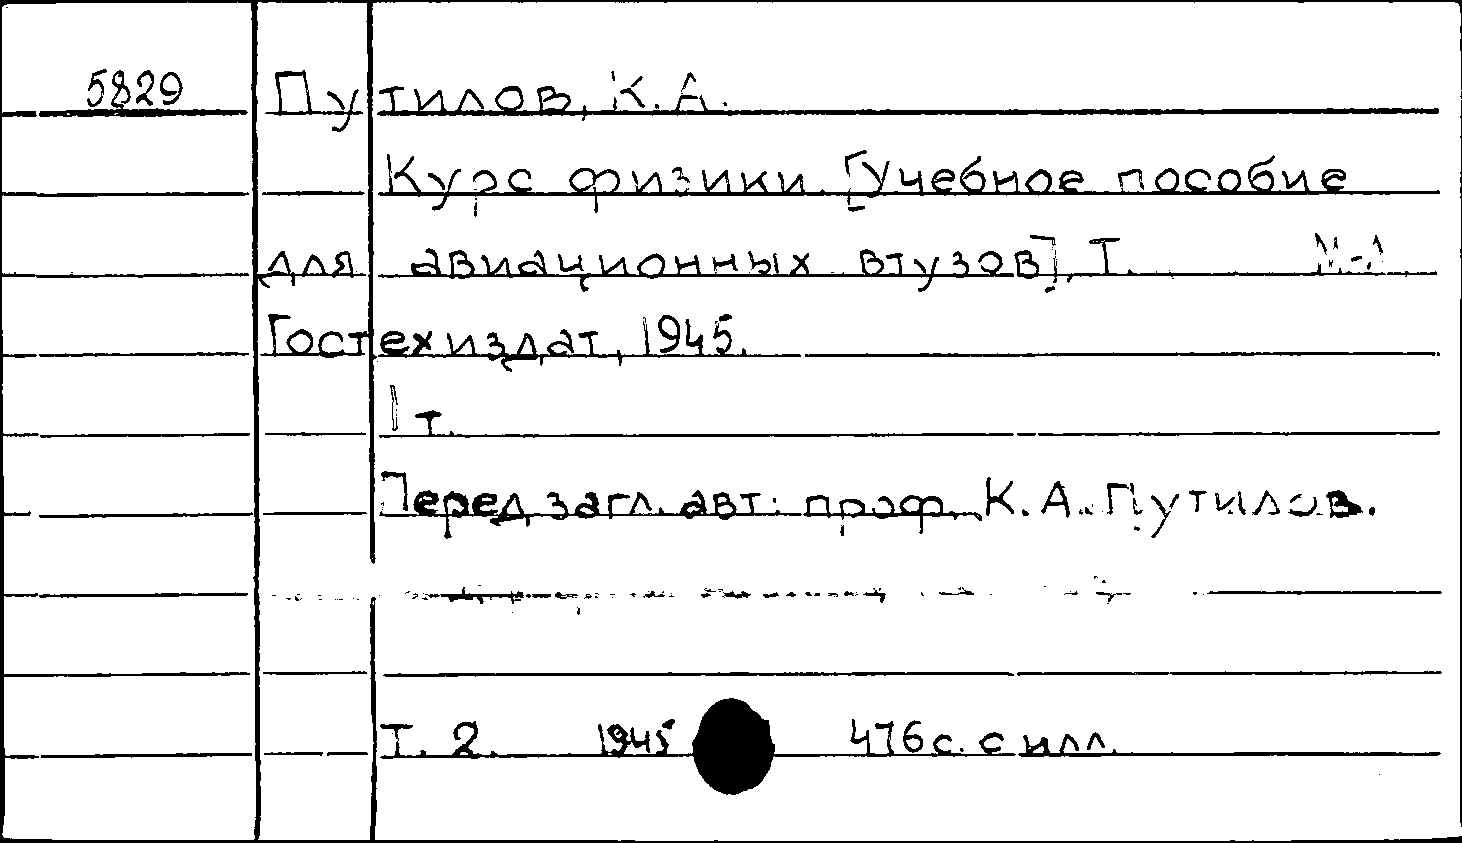 5829 Путилов, К. А.
Курс физики. [Учебное пособие
для авиационных втузов]. Т. М-Л.
Гостехиздат, 1945.
1 т.
Перед загл. авт: проф. К. А. Путилов.
Т. 2. 1945 476 с. с илл.